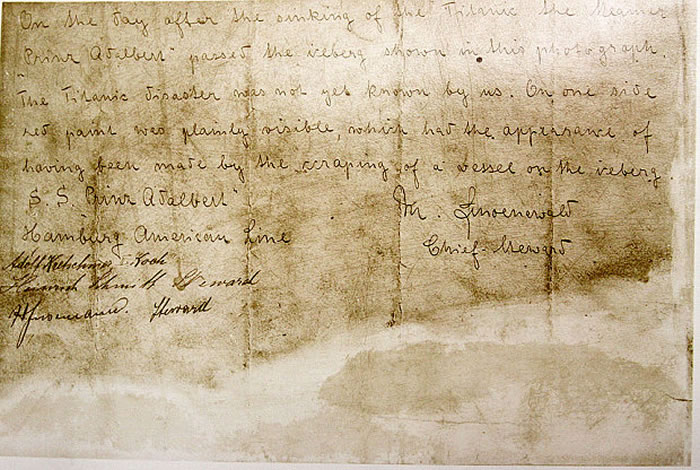 On the day after the sinking of the Titanic the steamer
"Prinz Adalbert" passed the iceberg shown in this photograph.
The Titanic disaster was not yet known by us. On one side
red paint was plainly visible, which had the appearance of
having been made by the scraping of a vessel on the iceberg.
S. S. Prinz Adalbert"
Hamburg American Line
M. Linoenewald
Chief Steward
Adolf Koch
Heinrich Steward
Steward